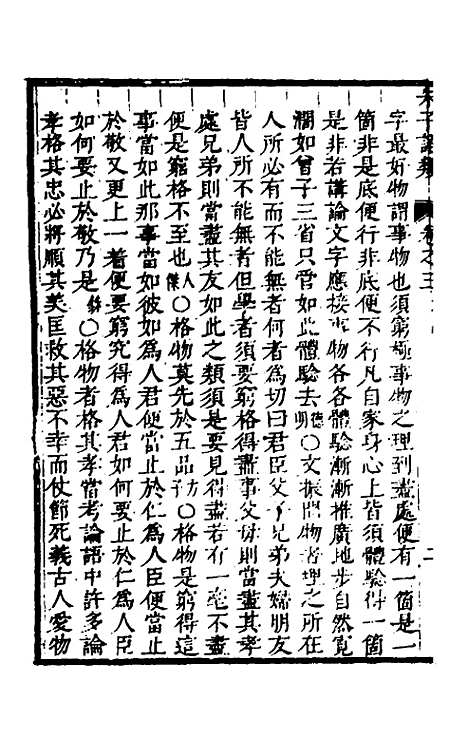 朱子語類
卷之三
二
字最好物謂事物也須窮極事物之理到盡處便有一箇是一
箇非是底便行非底便不行凡自家身心上皆須體驗得一箇
是非若講論文字應接事物各各體驗漸漸推廣地步自然寬
濶如曾子三省只管如此體驗去德明〇文振問物者理之所在
人所必有而不能無者何者為切曰君臣父子兄弟夫婦朋友
皆人所不能無者但學者須要窮格得盡事父母則當盡其孝
處兄弟則當盡其友如此之類須是要見得盡若有一毫不盡
便是窮格不至也人傑〇格物莫先於五品方子〇格物是窮得這
事當如此那事當如彼如為人君便當止於仁為人臣便當止
於敬又更上一着便要窮究得為人君如何要止於仁為人臣
如何要止於敬乃是銖〇格物者格其孝當考論語中許多論
孝格其忠必將順其美匡救其惡不幸而仗節死義古人愛物